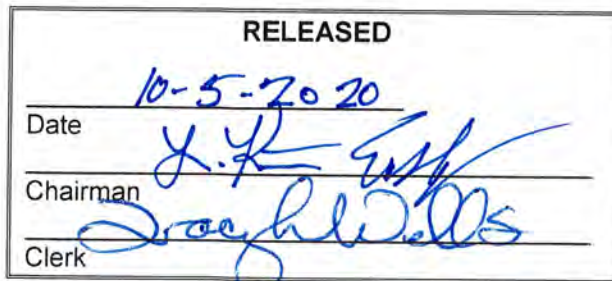 RELEASED
10-5-2020
Date
Chairman
Wells
Clerk